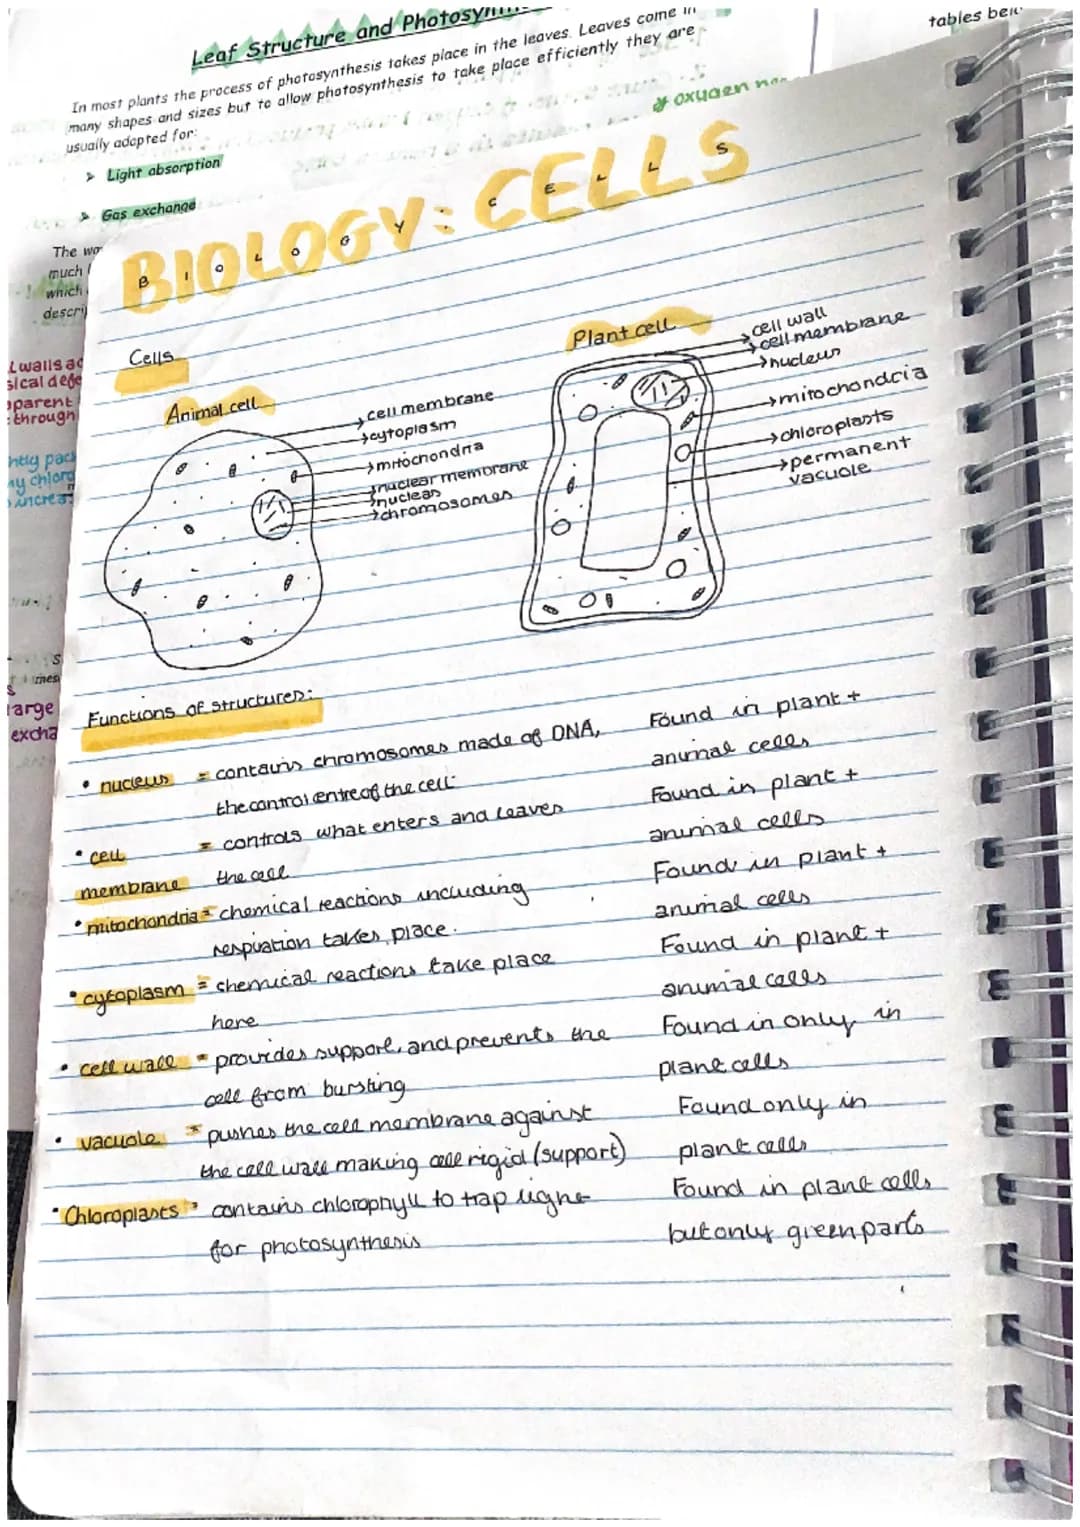 Leaf Structure and
In most plants the process of photosynthesis takes place in the leaves. Leaves come in
many shapes and sizes but to allow photosynthesis to take place efficiently they are
usually adapted for:
➤ Light absorption
➤ Gas exchange
The
much
which
tables
oxygen
L walls
parent
through
large
BIOLOGY: CELLS
BIOLOGY: CELLS
Cells
Animal cell
cell membrane
cytoplasm
mitochondria
nuclear membrane
nucleus
chromosomes
Plant cell
cell wall
cell membrane
nucleus
mitochondria
chloroplasts
permanent
vacuole
Functions of structures:
• nucleus = contains chromosomes made of DNA, Found in plant +
the control entre of the cell animal cells
• cell = controls what enters and leaves Found in plant +
membrane the cell animal cells
• mitochondria = chemical reactions including Found in plant +
respiration takes place. animal cells
• cytoplasm = chemical reactions take place Found in plant +
here animal cells
• cell wall = provides support, and prevents the Found in only in
cell from bursting plant cells
• vacuole = pushes the cell membrane against Found only in
the cell wall making cell rigid (support) plant cells
• Chloroplasts = contains chlorophyll to trap light Found in plant cells
for photosynthesis but only green parts